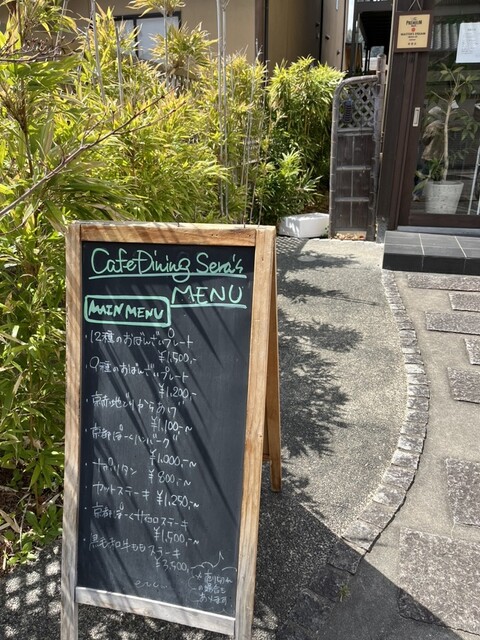 Cafe Dining Sera's
MENU
MAIN MENU
・12種のおばんざいプレート
¥1,500,-
・9種のおばんざいプレート
¥1,200,-
・京赤地どりからあげ
¥1,100,-~
・京都ぽーくハンバーグ
¥1,000,-~
・ナポリタン ¥800,-~
・カットステーキ ¥1,250,-~
・京都ぽーくサイコロステーキ
¥1,500,-~
・黒毛和牛ももステーキ
¥3,500,-
※売り切れ
の場合も
あります
PREMIUM